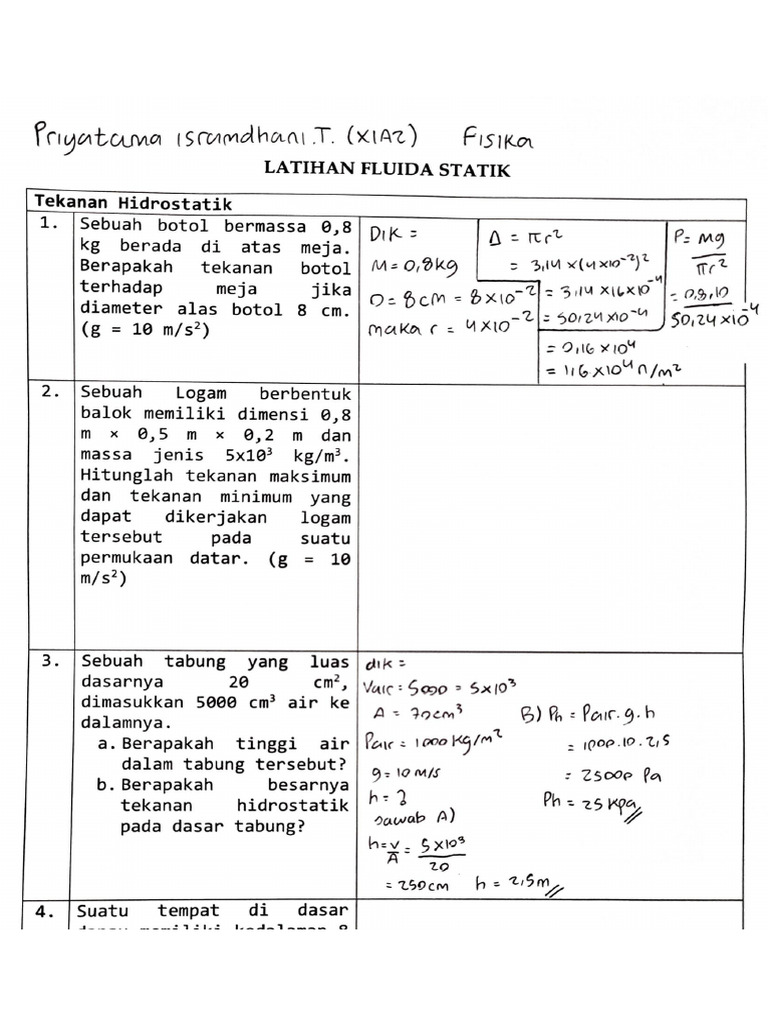 Priyatama isramdhani.T. (XIA2) Fisika
LATIHAN FLUIDA STATIK
Tekanan Hidrostatik
1. Sebuah botol bermassa 0,8
kg berada di atas meja.
Berapakah tekanan botol
terhadap meja jika
diameter alas botol 8 cm.
(g = 10 m/s²)
Dik =
M = 0,8kg
D = 8cm = 8×10⁻²
maka r = 4×10⁻²
A = πr²
= 3,14 ×(4×10⁻²)²
= 3,14 ×16×10⁻⁴
= 50,24×10⁻⁴
P = mg
πr²
= 0,8.10
50,24×10⁻⁴
= 0,16 ×10⁴
= 1,6 ×10⁴ n/m²
2. Sebuah Logam berbentuk
balok memiliki dimensi 0,8
m × 0,5 m × 0,2 m dan
massa jenis 5x10³ kg/m³.
Hitunglah tekanan maksimum
dan tekanan minimum yang
dapat dikerjakan logam
tersebut pada suatu
permukaan datar. (g = 10
m/s²)
3. Sebuah tabung yang luas
dasarnya 20 cm²,
dimasukkan 5000 cm³ air ke
dalamnya.
a. Berapakah tinggi air
dalam tabung tersebut?
b. Berapakah besarnya
tekanan hidrostatik
pada dasar tabung?
dik =
Vair = 5000 = 5×10³
A = 20cm³
Pair = 1000 kg/m²
g = 10 M/s
h = ?
Jawab A)
h = V/A = 5×10³
20
= 250cm h = 2,5m
B) Ph = Pair.g.h
= 1000.10.2,5
= 25000 Pa
Ph = 25 Kpa
4. Suatu tempat di dasar
danau memiliki kedalaman 8